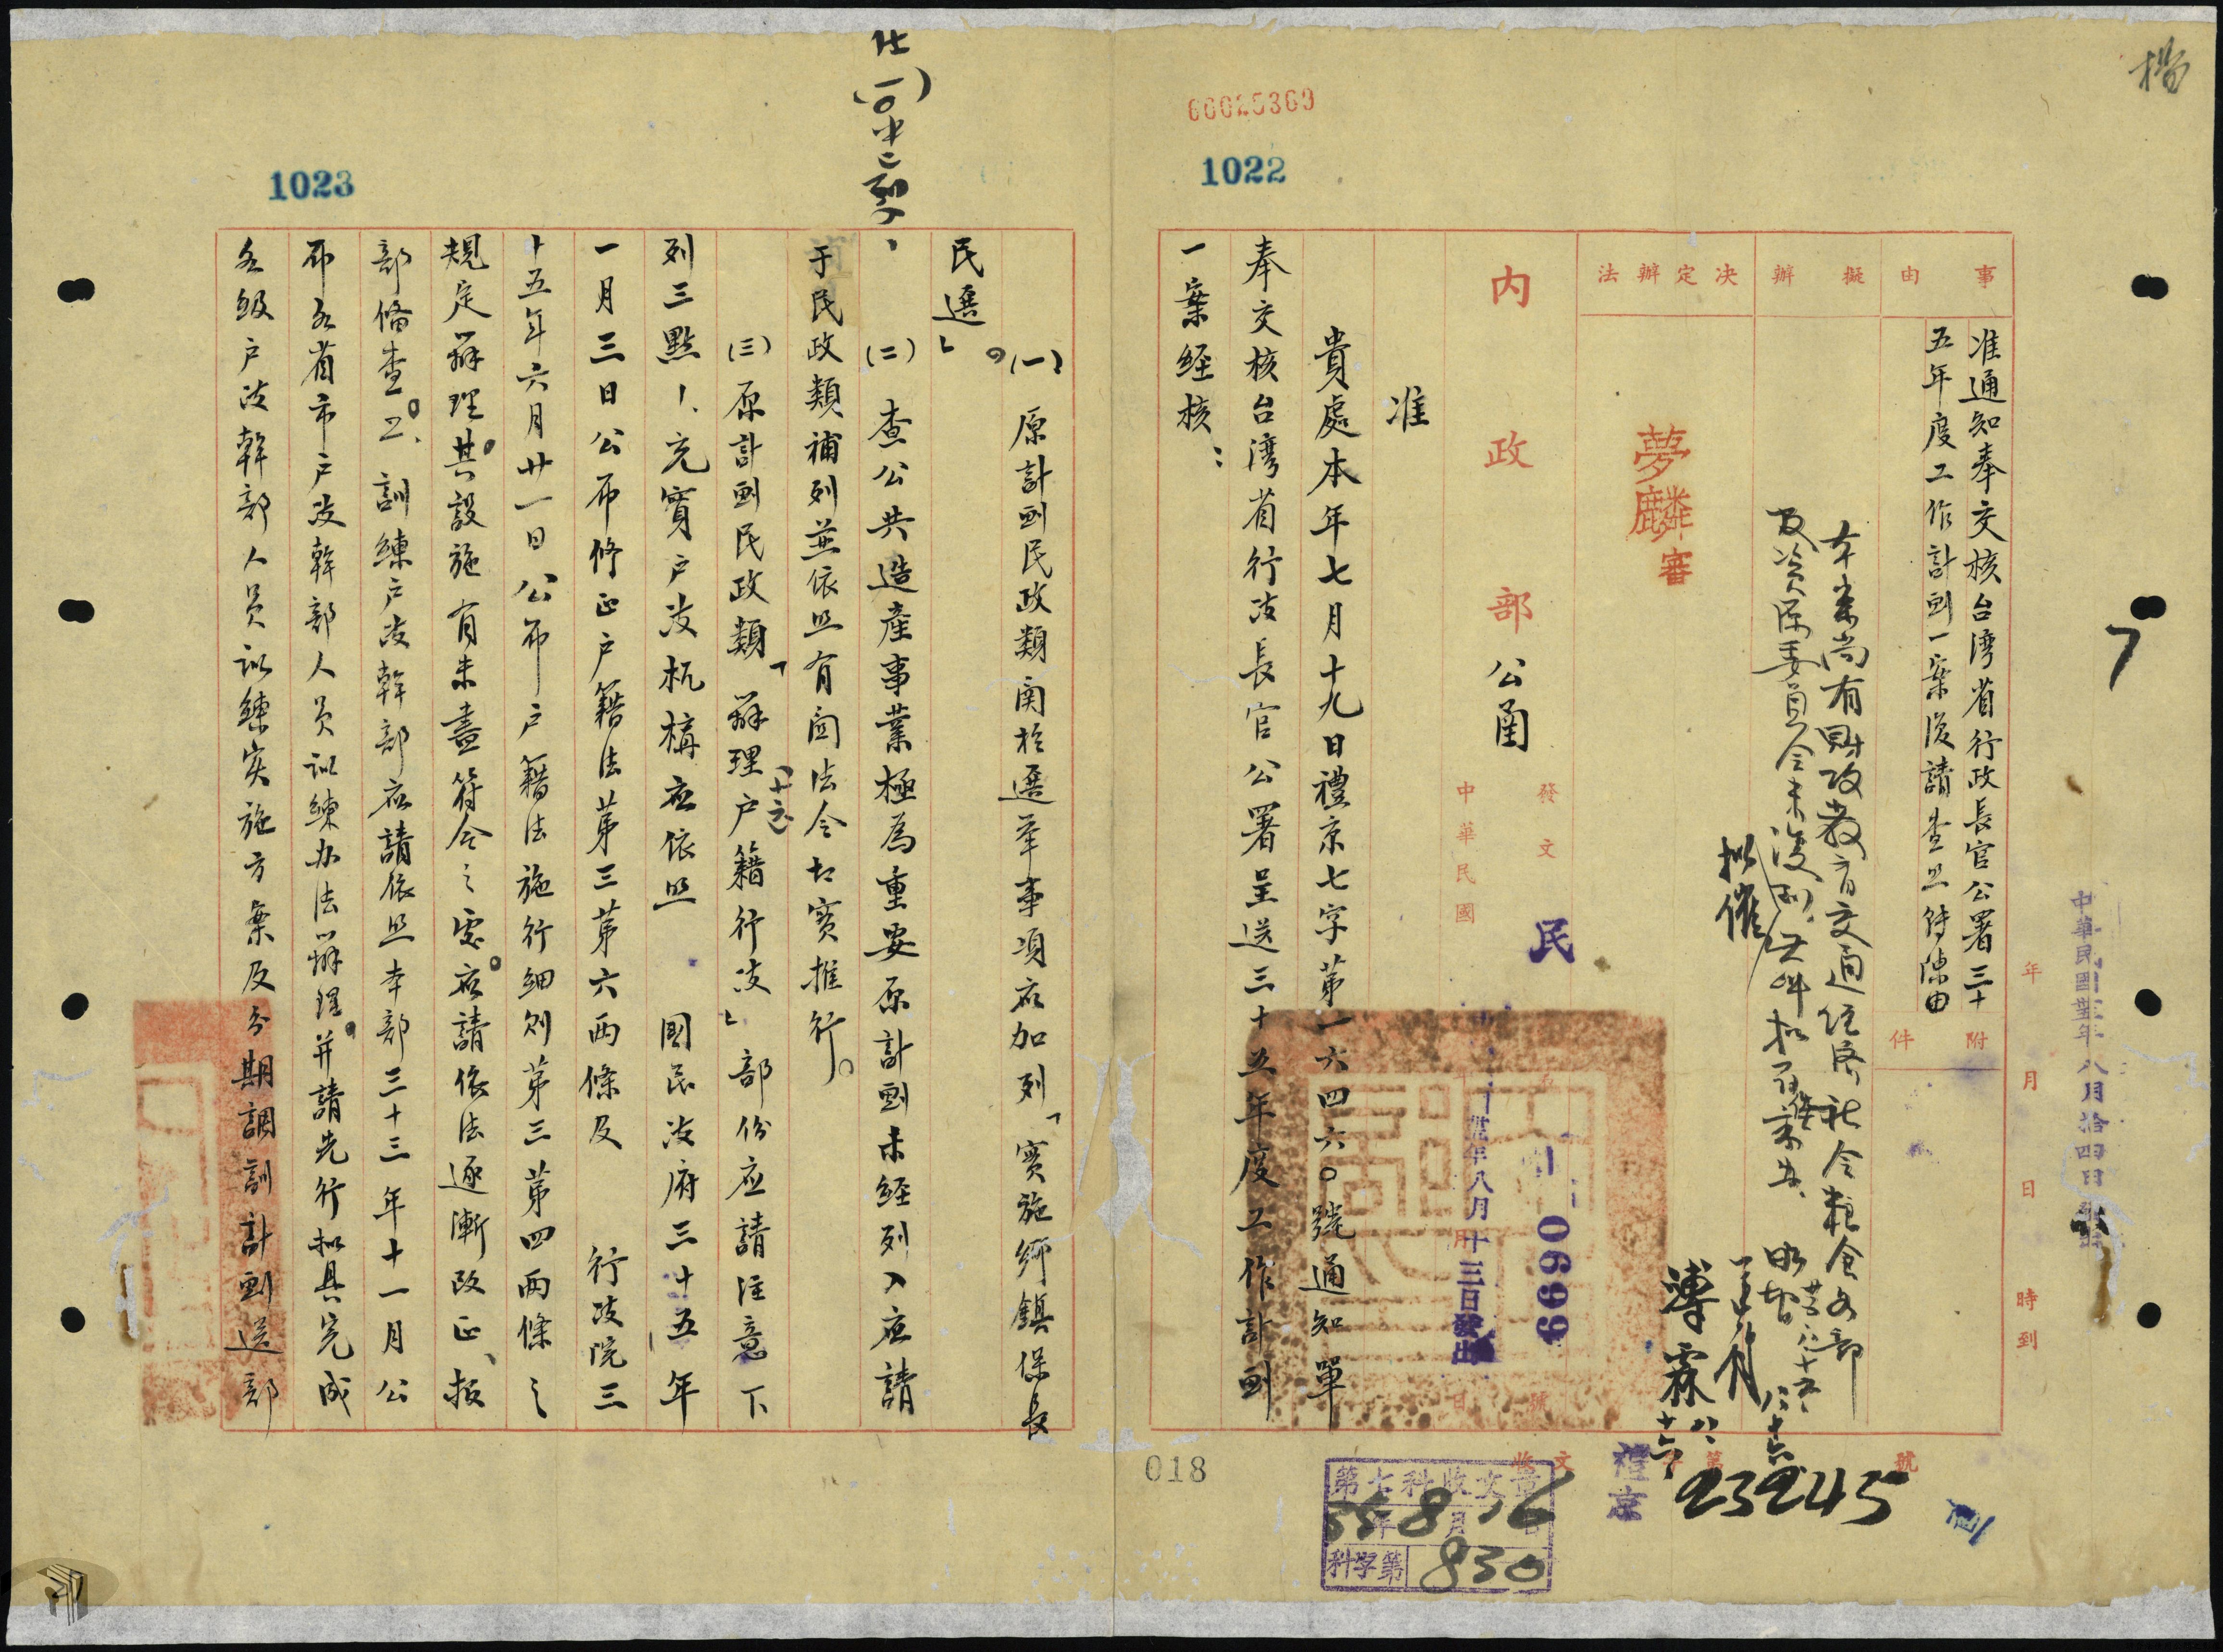 00025369
1022
事由
准通知奉交核台湾省行政長官公署三十
五年度工作計劃一案復請查照转陳由
附件
擬辦
本案尚有財政教育交通经済社会粮食女部
及资源委員会未復到
拟催
決定辦法
夢麟審
溥霖
年月日時到
中華民國卅五年八月拾四日
内政部公函
發文
民
0699號
中華民國
卅五年八月十三日發出
准
貴處本年七月十九日禮京七字第一六四六〇號通知單
奉交核台湾省行政長官公署呈送三十五年度工作計劃
一案経核：
收文
禮京
字第23245號
第七科收文章
35年8月16日
科字第830
018
7
1023
(一) 原計劃民政類関於選举事項应加列「實施鄉鎮保長
民選」。
(二) 查公共造產事業極為重要原計劃未經列入应請
于民政類補列並依照有関法令切實推行。
(三) 原計劃民政類「辦理户籍行政」部份应請注意下
列三點1.充實户政机構应依照 國民政府三十五年
一月三日公布修正户籍法第三第六両條及 行政院三
十五年六月廿一日公布户籍法施行細则第三第四両條之
規定辦理。其設施有未盡符合之處。应請依法逐漸改正、报
部備查。2.訓練户政幹部应請依照本部三十三年十一月公
布各省市户政幹部人员訓練办法辦理。并請先行拟具完成
各級户政幹部人员訓練实施方案及分期調訓計劃送部